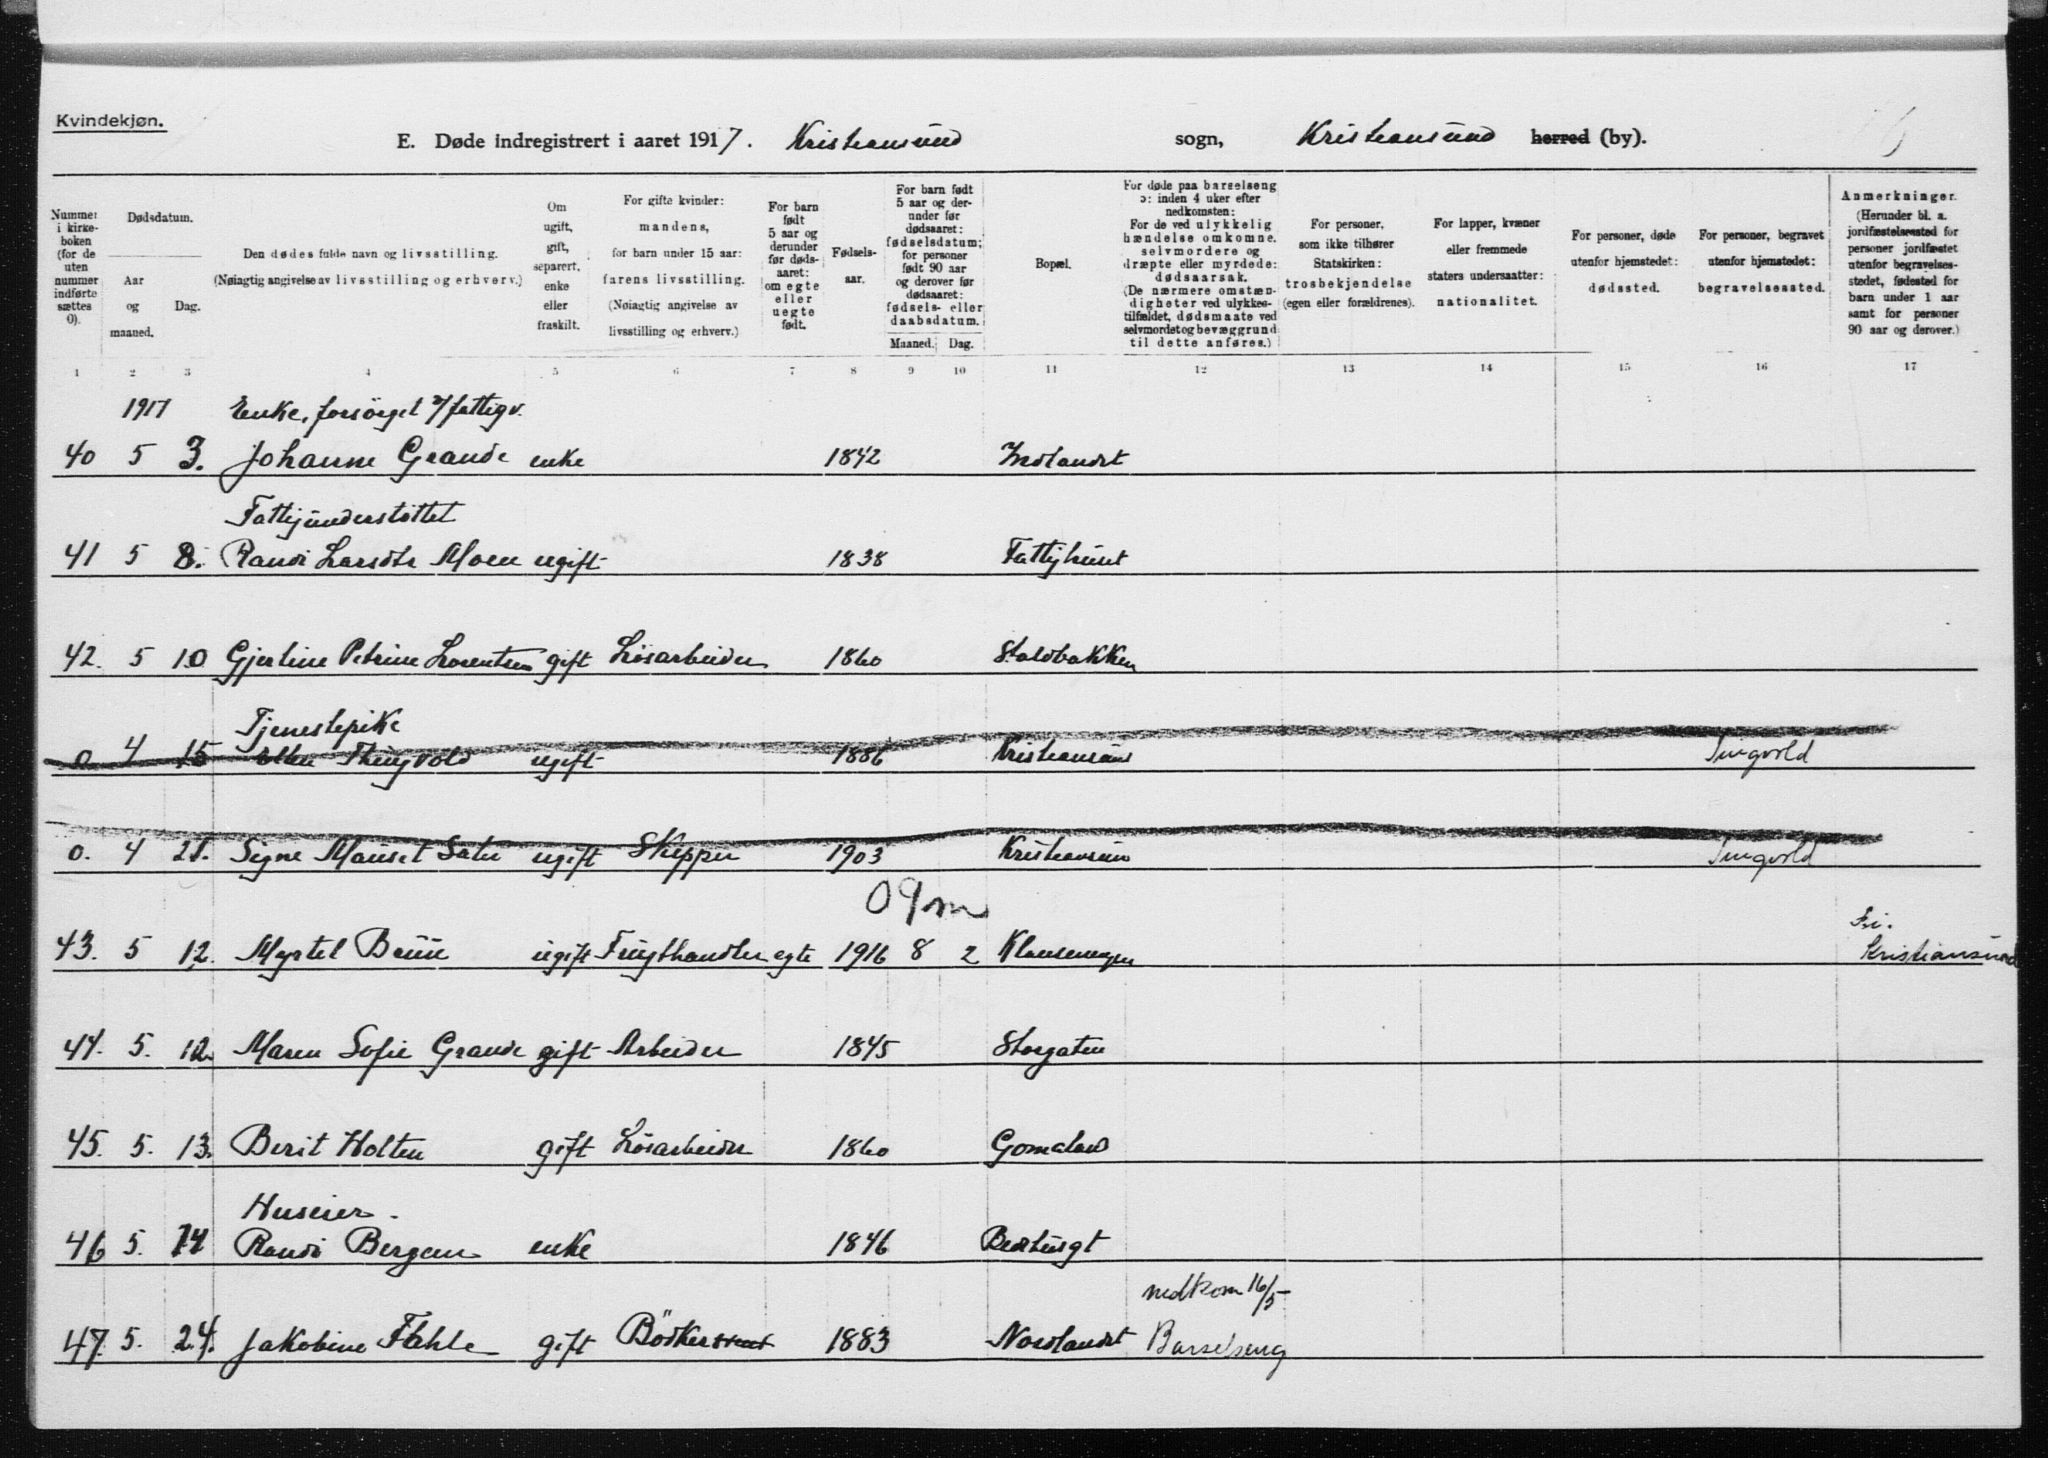 Kvindekjøn.
E. Døde indregistrert i aaret 1917. Kristiansund sogn, Kristiansund herred (by).
Nummer i kirkeboken (for de uten nummer indførte sættes 0).
Dødsdatum.
Aar og maaned.
Dag.
Den dødes fulde navn og livsstilling.
(Nøiagtig angivelse av livsstilling og erhverv.)
Om ugift, gift, separert, enke eller fraskilt.
For gifte kvinder: mandens, for barn under 15 aar: farens livsstilling. (Nøiagtig angivelse av livsstilling og erhverv.)
For barn født 5 aar og derunder før dødsaaret: om egte eller uegte født.
Fødselsaar.
For barn født 5 aar og derunder før dødsaaret: fødselsdatum; for personer født 90 aar og derover før dødsaaret: fødsels- eller daabsdatum.
Maaned. Dag.
Bopæl.
For døde paa barselseng ɔ: inden 4 uker efter nedkomsten: For de ved ulykkelig hændelse omkomne, selvmordere og dræpte eller myrdede: dødsaarsak. (De nærmere omstændigheter ved ulykkestilfældet, dødsmaate ved selvmordet og bevæggrund til dette anføres.)
For personer, som ikke tilhører Statskirken: trosbekjendelse (egen eller forældrenes).
For lapper, kvæner eller fremmede staters undersaatter: nationalitet.
For personer, døde utenfor hjemstedet: dødssted.
For personer, begravet utenfor hjemstedet: begravelsessted.
Anmerkninger. (Herunder bl. a. jordfæstelsessted for personer jordfæstet utenfor begravelsesstedet, fødested for barn under 1 aar samt for personer 90 aar og derover.)
1 2 3 4 5 6 7 8 9 10 11 12 13 14 15 16 17
1917 Enke, forsørget a/ fattigv.
40 5 3. Johanne Grande enke 1842 Indlandet
Fattigunderstöttet
41 5 8. Randi Larsdtr Moen ugift 1838 Fattighuset
42. 5 10 Gjertine Petrine Lorentsen gift Lösarbeider 1860 Staldbakken
Tjenestepike
0 4 15 Ellen Thingvold ugift 1886 Kristiansund Tingvold
0. 4 21. Signe Mauset Sater ugift Skipper 1903 Kristiansun Tingvold
0 9 m
Fri.
43. 5 12. Myrtel Bruu ugift Frugthandler egte 1916 8 2 Klausenvegen Kristiansund
44. 5. 12. Maren Sofie Grande gift Arbeider 1845 Storgaten
45. 5. 13. Berit Holten gift Lösarbeider 1860 Gomaland
Huseier.
46 5. 14 Randi Bergem enke 1846 Bedhusgt
nedkom 16/5
47. 5. 24. Jakobine Fahle gift Bödkersvend 1883 Nordlandet Barselseng